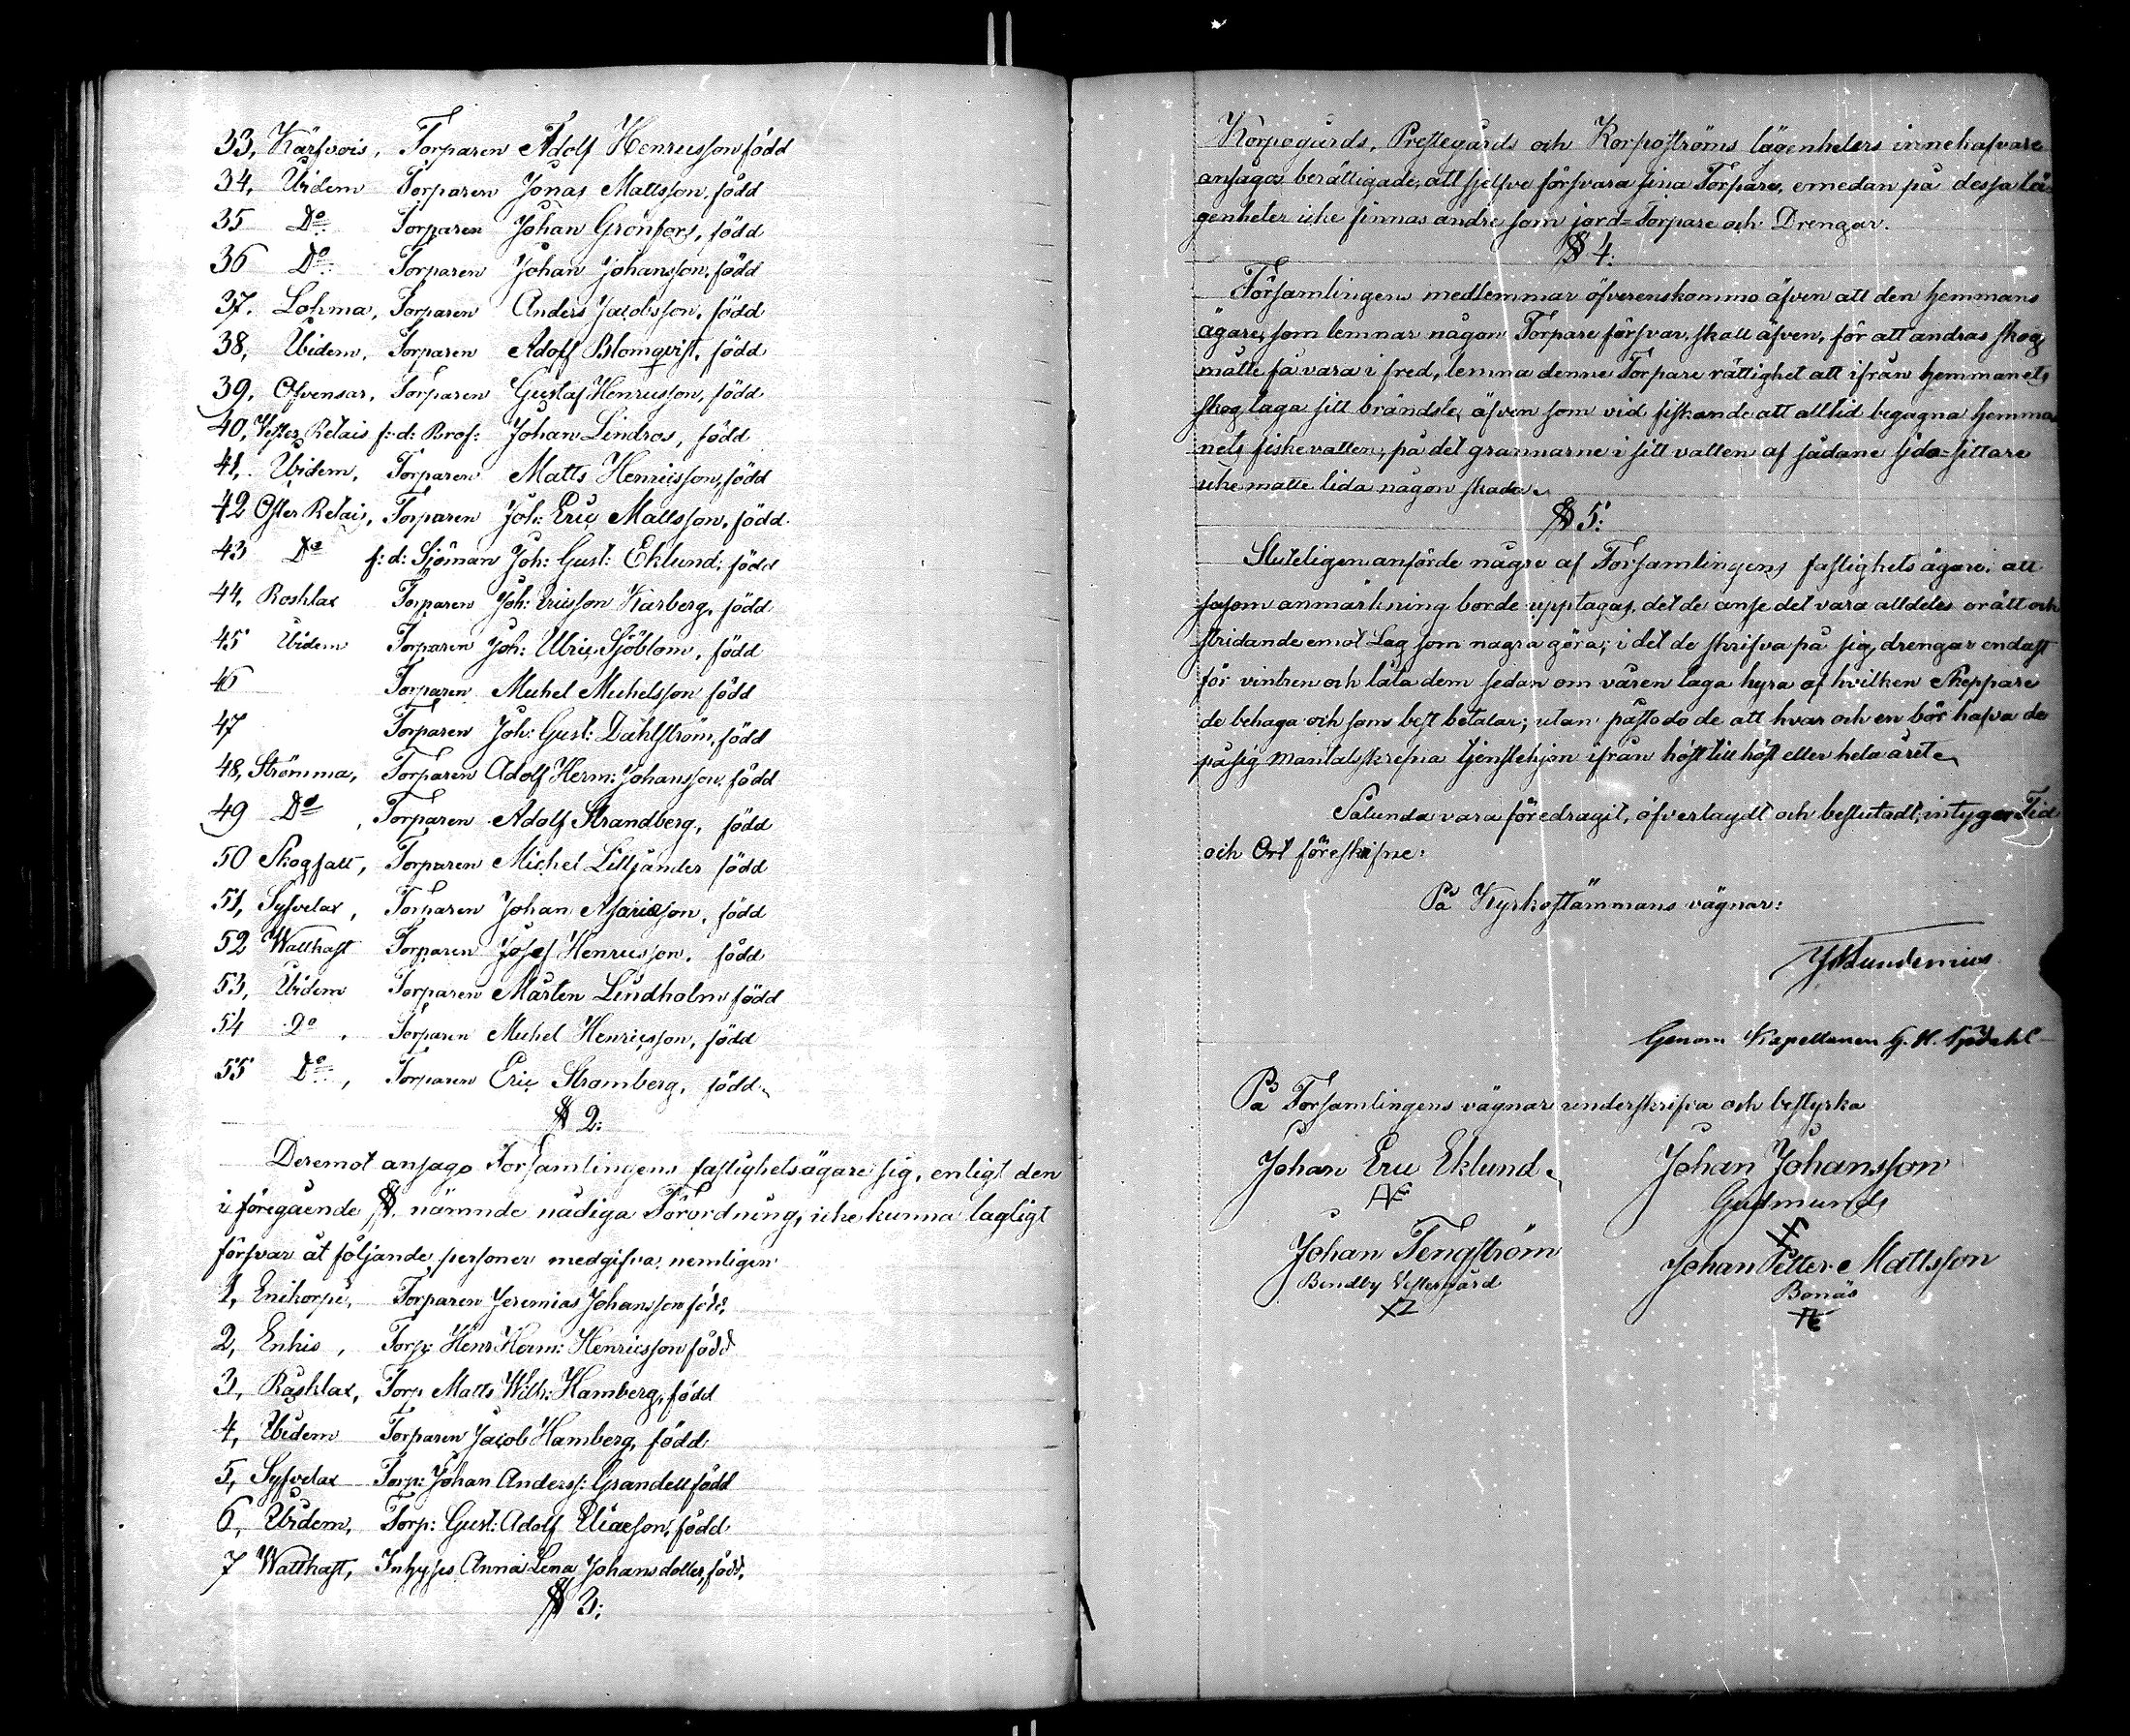 33, Kärfvois, Torparen Adolf Henricsson född
34, Ibidem Torparen Jonas Mattsson, född
35 Do Torparen Johan Grönfors, född
36 Do Torparen Johan Johansson, född
37. Lohma, Torparen Anders Jacobsson, född
38, Ibidem, Torparen Adolf Blomqvist, född
39, Ofvensar, Torparen Gustaf Henricsson, född
40, Vester Retais f: d: Brof: Johan Lindros, född
41, Ibidem, Torparen Matts Henricsson, född
42 Öster Retais, Torparen Joh: Eric Mattsson, född.
43 Do f: d: Sjöman Joh: Gust: Eklund: född
44, Rosklax Torparen Joh: Ericsson Karberg, född
45 Ibidem Torparen Joh: Ulric Sjöblom, född
46 Torparen Michel Michelsson född
47 Torparen Joh: Gust: Dahlström, född
48, Strömma, Torparen Adolf Herm: Johansson, född
49 Do, Torparen Adolf Strandberg, född
50 Skogfatt, Torparen Michel Lilljander född
51, Syfvelax, Torparen Johan Asariæson, född
52 Wattkast Torparen Josef Henricsson, född
53, Ibidem Torparen Mårten Lindholm född
54 Do, Torparen Michel Henricsson, född
55 Do, Torparen Eric Stramberg, född.
§ 2:
Deremot ansago Församlingens fastighetsägare sig, enligt den
i föregående §. nämnde nådiga Förordning, icke kunna lagligt
försvar åt följande personer medgifva, nemligen
1, Enikorpi, Torparen Jeremias Johansson född.
2, Enkis, Torp: Henr Herm: Henricsson född
3, Råsklax, Torp Matts Wilh: Hamberg, född
4, Ibidem Torparen Jacob Hamberg, född
5, Syfvelax Torp: Johan Anderss: Grandell född
6, Ibidem, Torp: Gust: Adolf Eliæson, född
7 Wattkast, Inhyses Anna Lena Johansdotter, född.
§ 3:
Korpogårds, Prestegårds och Korpoströms lägenheters innehafvare
ansågos berättigade, att sjelfve försvara sina Torpare, emedan på dessa lä-
genheter icke finnas andre som jord=Torpare och Drengar.
§ 4:
Församlingens medlemmar öfverenskommo äfven att den hemmans
ägare, som lemnar någon Torpare försvar, skall äfven, för att andras skog
måtte få vara i fred, lemna denne Torpare rättighet att ifrån hemmanets
skog taga sitt brändsle, äfven som vid fiskande att alltid begagna hemma-
nets fiskevatten, på det grannarne i sitt vatten af sådane sido=sittare
icke måtte lida någon skada.
§ 5:
Sluteligen anförde några af Församlingens fastighets ägare: att
såsom anmärkning borde upptagas, det de anse det vara alldeles orätt och
stridande emot Lag som några göra; i det de skrifva på sig drengar endast
för vintren och låta dem sedan om våren taga hyra af hvilken Skeppare
de behaga och som best betalar; utan påstodo de att hvar och en bör hafva de
på sig mantalsskrefna tjenstehjon ifrån höst till höst eller hela året.
Sålunda vara föredragit, öfverlagdt och beslutadt, intygar Tid
och Ort föreskrifne:
På Kyrkostämmans vägnar:
Lundenius
Genom Kapellanen G. H.
På Församlingens vägnar underskrifva och bestyrka
Johan Eric Eklund. Johan Johansson
Gudmunds
Johan Tengström Johan Petter Mattsson
Bendby Vestergård Bonäs